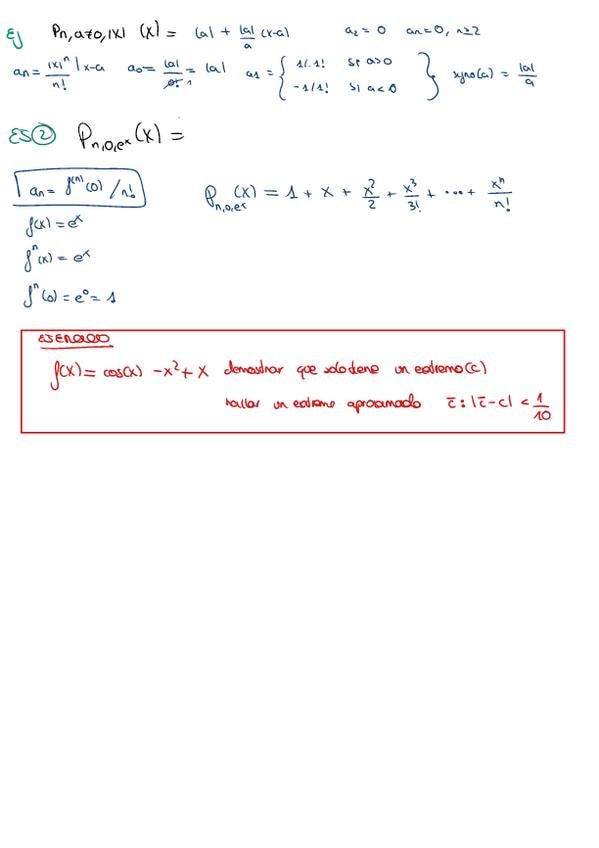 Ej P_{n,a≠0,|x|} (x) = |a| + |a|/a (x-a) a_2 = 0 a_n = 0, n≥2
a_n = |x|^n / n! |_{x=a} a_0 = |a|/0! = |a| a_1 = { 1/1! si a>0
-1/1! si a<0 } signo(a) = |a|/a
Ej② P_{n,0,e^x}(x) =
a_n = f^{(n)}(0) / n! P_{n,0,e^x}(x) = 1 + x + x^2/2 + x^3/3! + ... + x^n/n!
f(x) = e^x
f^n(x) = e^x
f^n(0) = e^0 = 1
EJERCICIO
f(x) = cos(x) - x^2 + x demostrar que solo tiene un extremo (c)
hallar un extremo aproximado c̄ : |c̄ - c| < 1/10